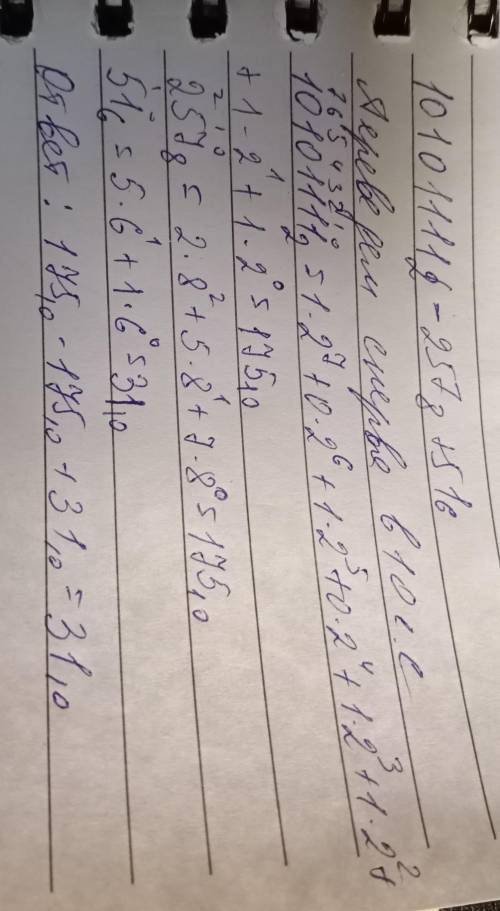 10101111₂ - 257₈ + 51₆
Переведем сперва в 10 с.с
1⁷0⁶1⁵0⁴1³1²1¹1⁰₂ = 1·2⁷ + 0·2⁶ + 1·2⁵ + 0·2⁴ + 1·2³ + 1·2² +
+ 1·2¹ + 1·2⁰ = 175₁₀
2²5¹7⁰₈ = 2·8² + 5·8¹ + 7·8⁰ = 175₁₀
5¹1⁰₆ = 5·6¹ + 1·6⁰ = 31₁₀
Ответ: 175₁₀ - 175₁₀ + 31₁₀ = 31₁₀